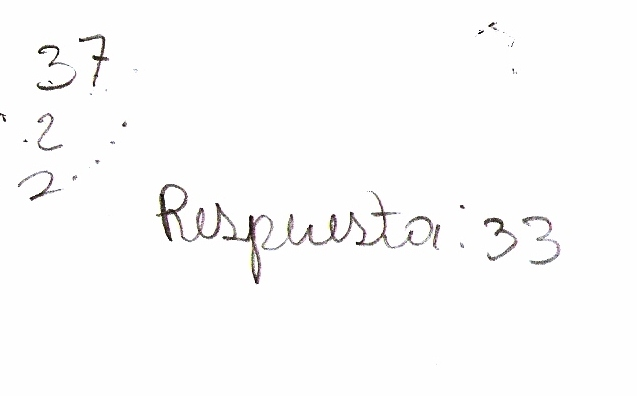 37
2
2
Respuesta: 33